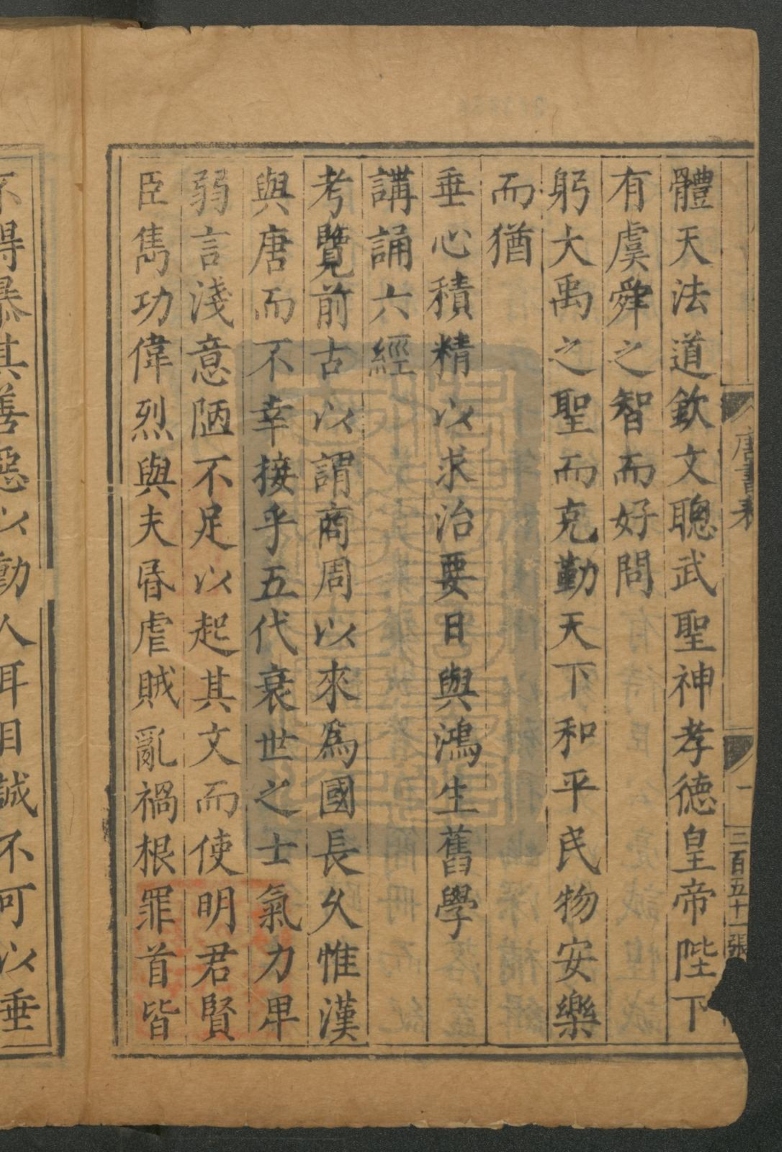 唐書表
一
三百五十一張
體天法道欽文聰武聖神孝德皇帝陛下
有虞舜之智而好問
躬大禹之聖而克勤天下和平民物安樂
而猶
垂心積精以求治要日與鴻生舊學
講誦六經
考覽前古以謂商周以來爲國長久惟漢
與唐而不幸接乎五代衰世之士氣力卑
弱言淺意陋不足以起其文而使明君賢
臣雋功偉烈與夫昏虐賊亂禍根罪首皆
不得暴其善惡以動人耳目誠不可以垂